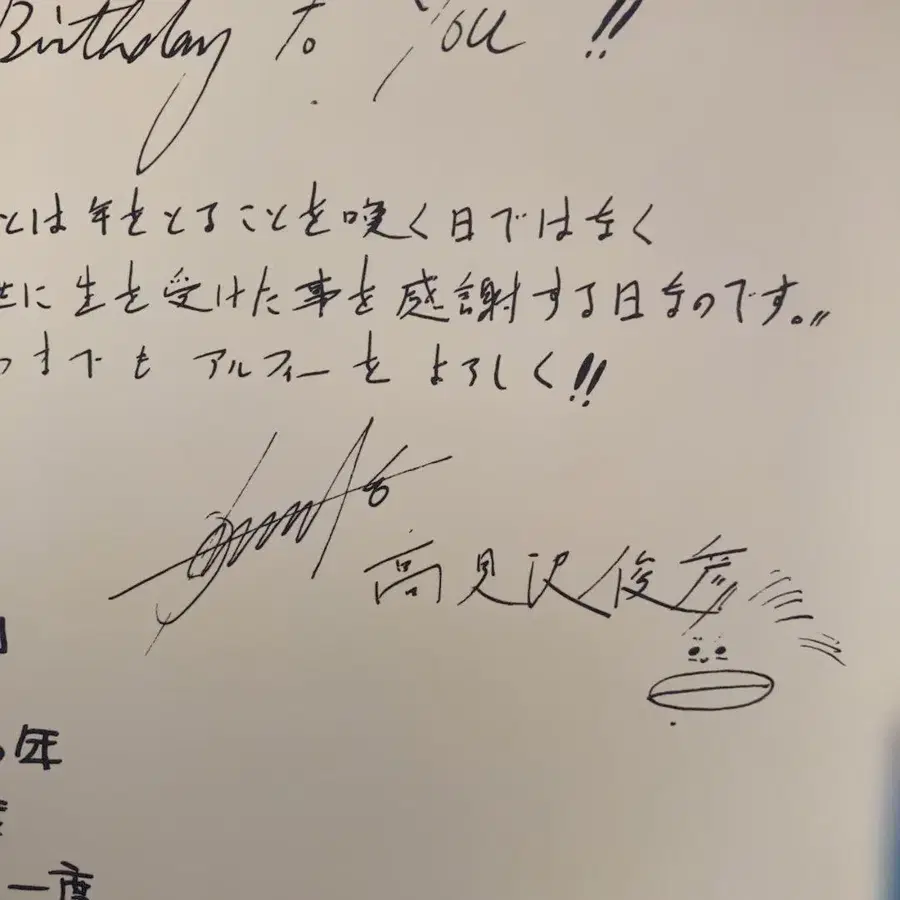 Birthday to You!!
とは年をとることを嘆く日ではなく
世に生を受けた事を感謝する日なのです。〃
つまでも アルフィーを よろしく!!
高見沢俊彦
年
一度